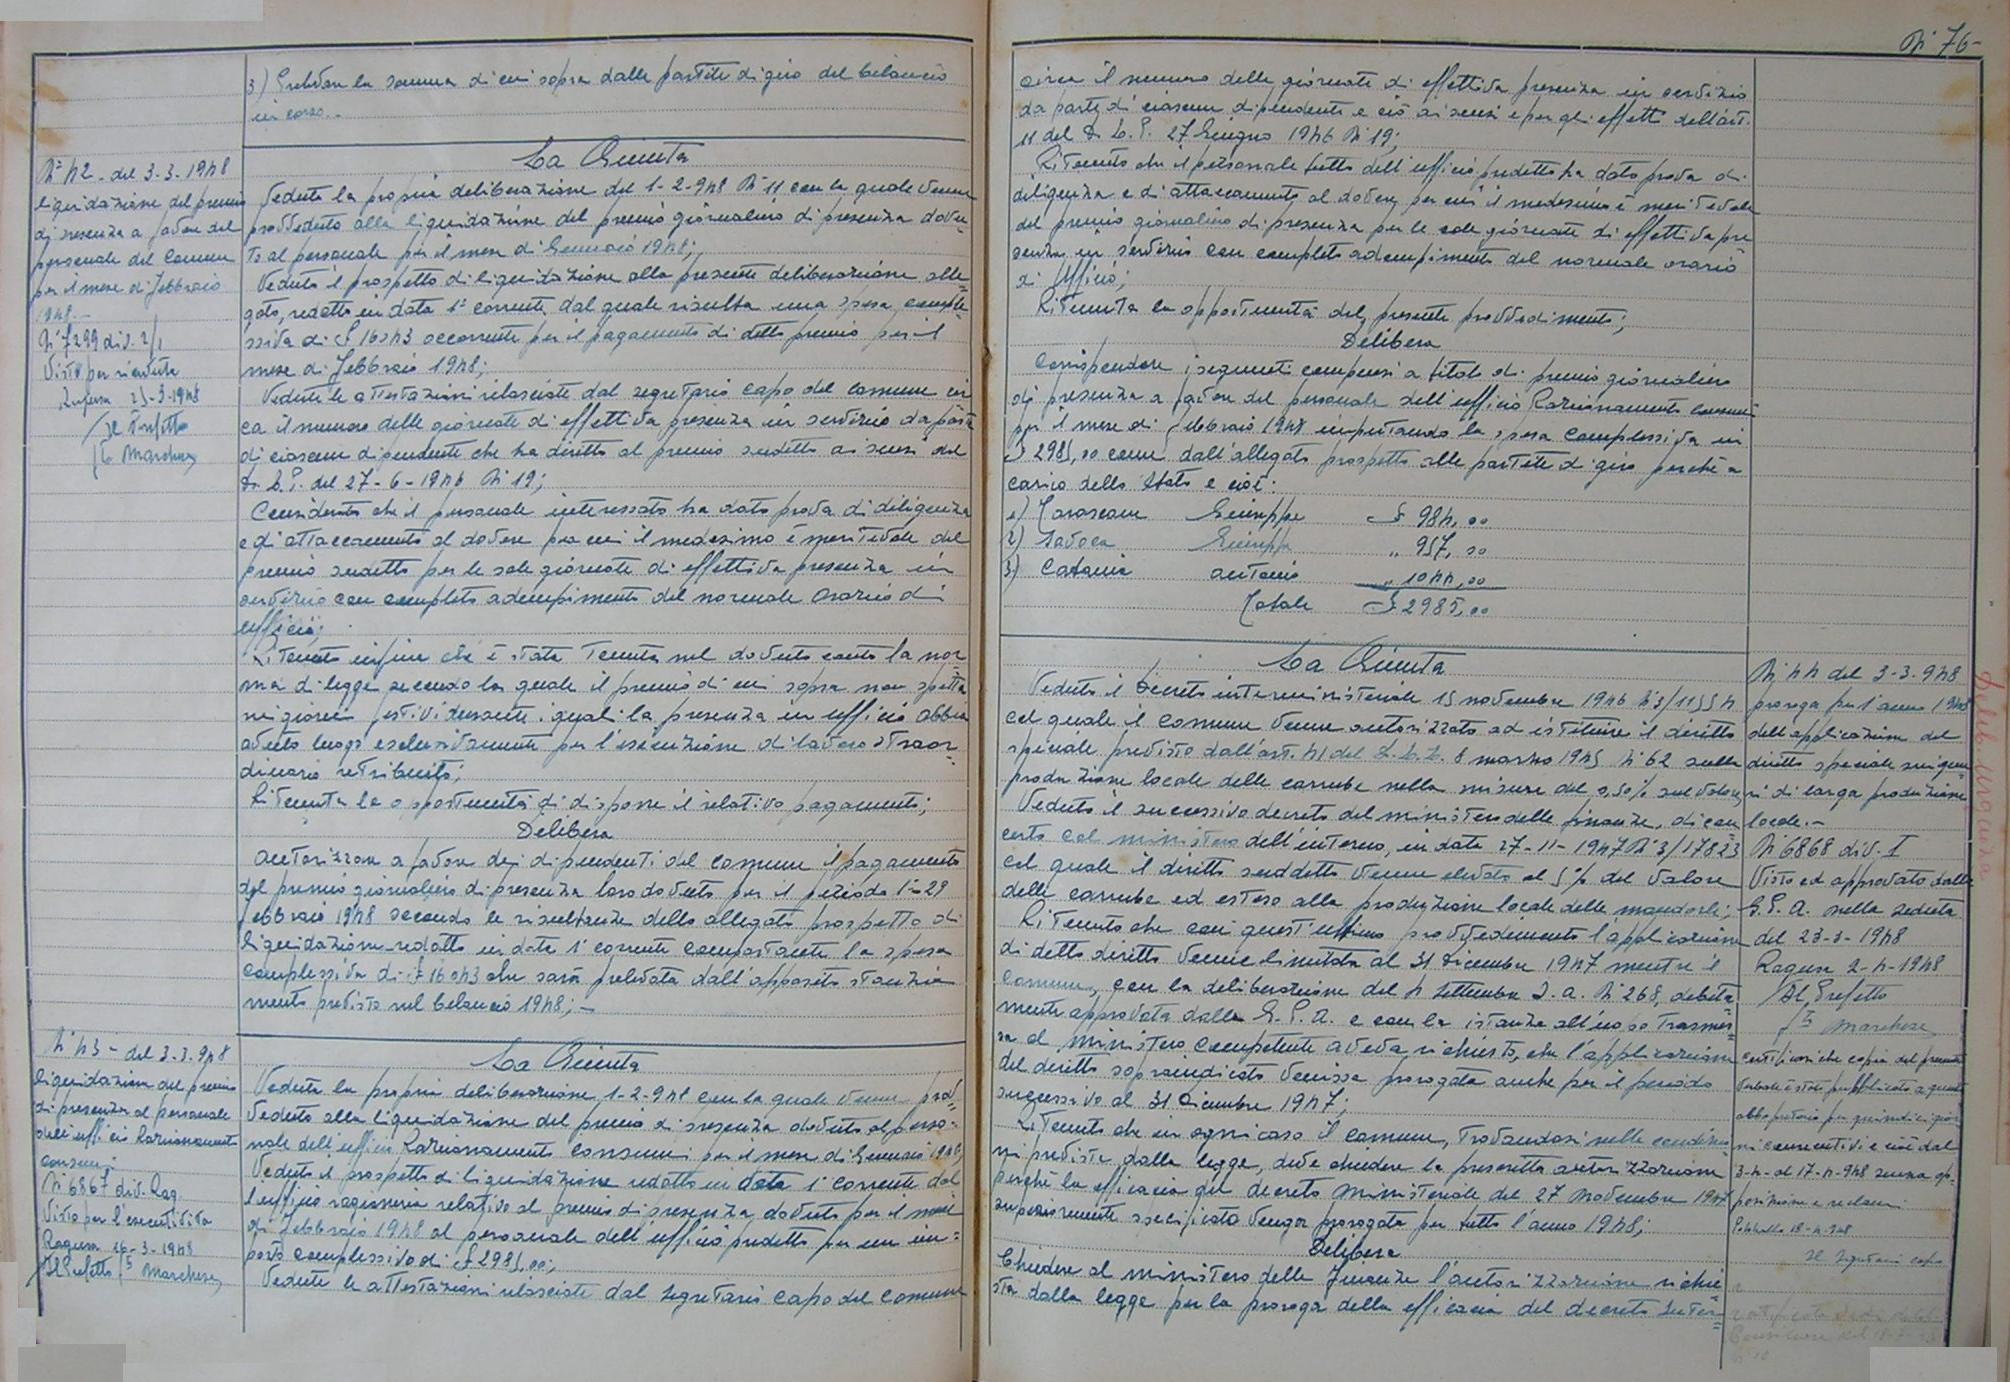 3) Prelevare la somma di cui sopra dalle partite di giro del bilancio
in corso. -
N° 42 - del 3-3-1948
liquidazione del premio
di presenza a favore del
personale del Comune
per il mese di febbraio
1948. -
N° 7299 div. 2/1
Visto per ricevuta
Ragusa 25-3-1948
Il Prefetto
fto Marchese
La Giunta
Veduta la propria deliberazione del 1-2-948 N° 11 con la quale venne
provveduto alla liquidazione del premio giornaliero di presenza dovu-
to al personale per il mese di Gennaio 1948;
Veduto il prospetto di liquidazione alla presente deliberazione alle-
gato, redatto in data 1° corrente dal quale risulta una spesa comples-
siva di £ 16043 occorrente per il pagamento di detto premio per il
mese di febbraio 1948;
Vedute le attestazioni rilasciate dal segretario capo del comune cir
ca il numero delle giornate di effettiva presenza in servizio da parte
di ciascun dipendente che ha diritto al premio sudetto ai sensi del
D. L. P. del 27-6-1946 N° 19;
Considerato che il personale interessato ha dato prova di diligenza
e d'attaccamento al dovere per cui il medesimo è meritevole del
premio sudetto per le sole giornate di effettiva presenza in
servizio con completo adempimento del normale orario di
ufficio;
Ritenuto infine che è stata tenuta nel dovuto conto la nor-
ma di legge secondo la quale il premio di cui sopra non spetta
nei giorni festivi durante i quali la presenza in ufficio abbia
avuto luogo esclusivamente per l'esecuzione di lavoro straor-
dinario retribuito;
Ritenuta la opportunità di disporre il relativo pagamento;
Delibera
Autorizzare a favore dei dipendenti del comune il pagamento
del premio giornaliero di presenza loro dovuto per il periodo 1-29
febbraio 1948 secondo le risultanze dello allegato prospetto di
liquidazione redatto in data 1° corrente comportante la spesa
complessiva di £ 16043 che sarà prelevata dall'apposito stanzia
mento previsto nel bilancio 1948; -
N° 43 - del 3-3-948
liquidazione del premio
di presenza al personale
dell'ufficio Razionamento
consumi
N° 6867 div. Rag.
Visto per l'esecutività
Ragusa 26-3-1948
Il Prefetto fto Marchese
La Giunta
Veduta la propria deliberazione 1-2-948 con la quale venne prov-
veduto alla liquidazione del premio di presenza dovuto al perso-
nale dell'ufficio Razionamento consumi per il mese di Gennaio 1948;
Veduto il prospetto di liquidazione redatto in data 1° corrente dal
l'ufficio ragioneria relativo al premio di presenza dovuto per il mese
di febbraio 1948 al personale dell'ufficio predetto per un im-
porto complessivo di £ 2985,00;
Vedute le attestazioni rilasciate dal segretario capo del comune
N° 76 -
circa il numero delle giornate di effettiva presenza in servizio
da parte di ciascun dipendente e ciò ai sensi e per gli effetti dell'art.
11 del D. L. P. 27 Giugno 1946 N° 19;
Ritenuto che il personale tutto dell'ufficio predetto ha dato prova di
diligenza e di attaccamento al dovere per cui il medesimo è meritevole
del premio giornaliero di presenza per le sole giornate di effettiva pre
senza in servizio con completo adempimento del normale orario
di Ufficio;
Ritenuta la opportunità del presente provvedimento;
Delibera
Corrispondere i seguenti compensi a titolo di premio giornaliero
di presenza a favore del personale dell'ufficio Razionamento consumi
per il mese di febbraio 1948 imputando la spesa complessiva in
£ 2985,00 come dall'allegato prospetto alle partite di giro perché a
carico dello Stato e cioè:
1) Giuseppe £ 984,00
2) Savoca Giuseppe " 957,00
3) Catania Antonio " 1044,00
Totale £ 2985,00
La Giunta
Veduto il Decreto interministeriale 15 novembre 1946 N° 3/11554
col quale il comune venne autorizzato ad istituire il diritto
speciale previsto dall'art. 41 del D.L.L. 8 marzo 1945 N° 62 sulla
produzione locale delle carrube nella misura del 0,50% sul valore
Veduto il successivo decreto del ministero delle finanze, di con
certo col ministero dell'interno, in data 27-11-1947 N° 3/17823
col quale il diritto suddetto venne elevato al 5% del valore
delle carrube ed esteso alla produzione locale delle mandorle;
Ritenuto che con quest'ultimo provvedimento l'applicazione
di detto diritto venne limitata al 31 Dicembre 1947 mentre il
comune, con la deliberazione del 4 Settembre D. a. N° 268, debita
mente approvata dalla G. P. A. e con la istanza all'uopo trasmes-
sa al ministero competente aveva richiesto, che l'applicazione
del diritto sopraindicato venisse prorogata anche per il periodo
successivo al 31 Dicembre 1947;
Ritenuto che in ogni caso il comune, trovandosi nelle condizio
ni previste dalla legge, deve chiedere la prescritta autorizzazione
perché la efficacia del decreto ministeriale del 27 Novembre 1947
superiormente specificato venga prorogata per tutto l'anno 1948;
Delibera
Chiedere al ministero delle finanze l'autorizzazione richie-
sta dalla legge per la proroga della efficacia del decreto Inter-
N° 44 del 3-3-948
proroga per l'anno 1948
dell'applicazione del
diritto speciale sui gene-
ri di larga produzione
locale. -
N° 6868 div. I
Visto ed approvato dalla
G. P. A. nella seduta
del 23-3-1948
Ragusa 2-4-1948
Il Prefetto
fto Marchese
Certificasi che copia del presente
verbale è stata pubblicata a questo
albo pretorio per quindici gior
ni consecutivi e cioè dal
3-4- al 17-4-948 senza op
posizione e reclami.
18-4-948
Il Segretario capo